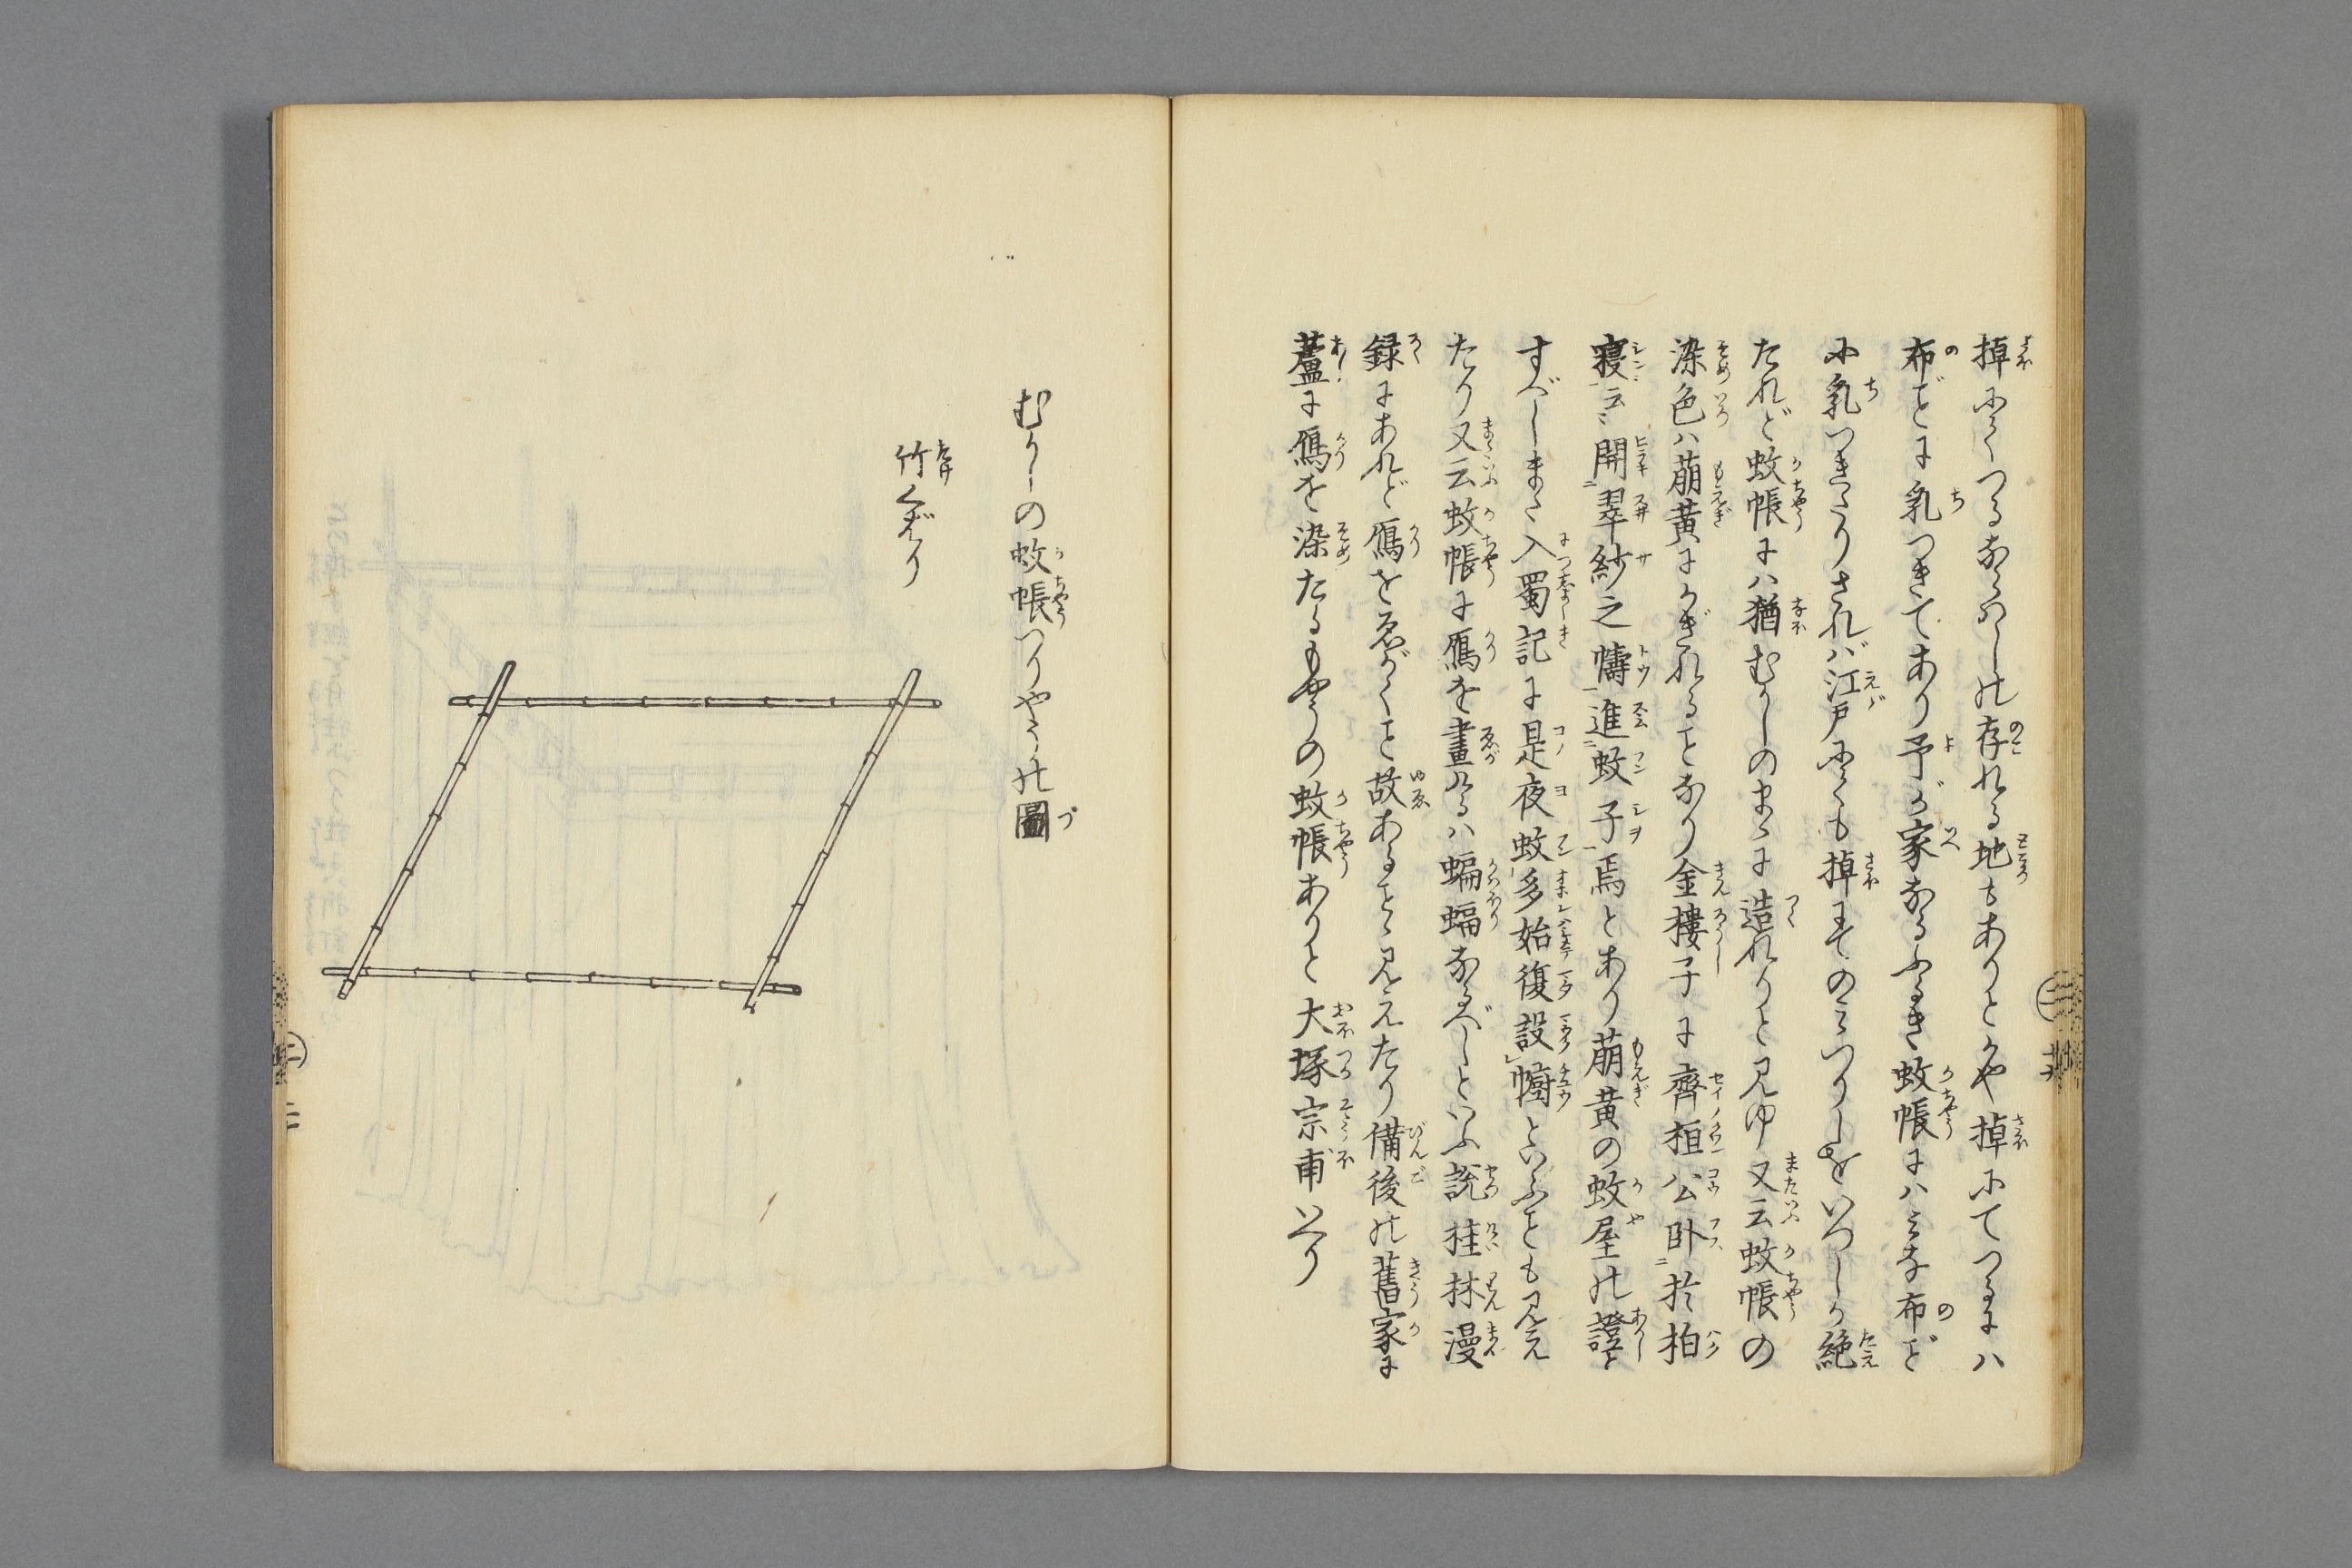 掉にてつるならはしの存れる地もありとかや掉にてつるには
布ごとに乳つきてあり予が家なるふるき蚊帳にはみな布ご
に乳つきたりされば江戸にても掉にてのみつりしをいつしか絶
たれど蚊帳には猶むかしのまゝに造れりと見ゆ又云蚊帳の
染色ハ萠黄にかぎれることなり金樓子に齊桓公卧於柏
寝云〻開翠紗之幬進蚊子焉とあり萠黄の蚊屋の證と
すべしまた入蜀記に是夜蚊多始復設幮といふことも見え
たり又云蚊帳に鴈を畫けるハ蝙蝠なるべしといふ説桂林漫
録にあれど鴈をゑがくこと故あることゝ見えたり備後の舊家に
蘆に鴈を染たるもやうの蚊帳ありと大塚宗甫いへり
むかしの蚊帳つりやうの圖
竹くだり